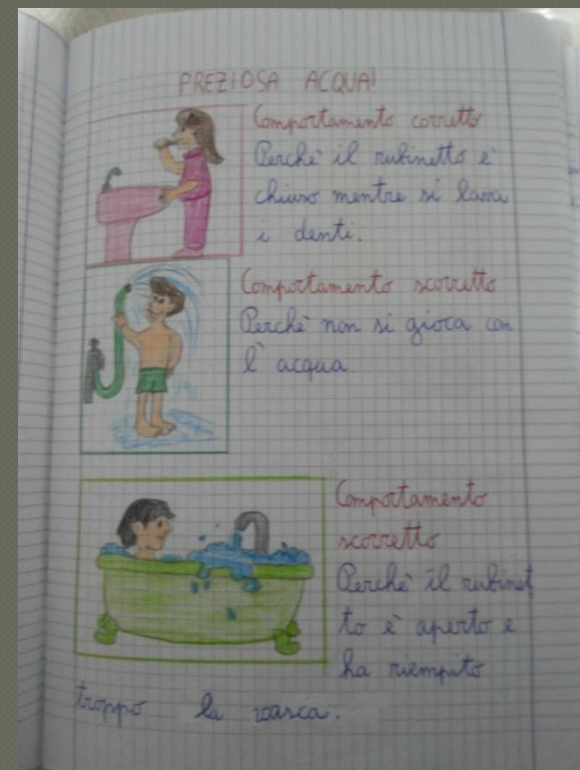 PREZIOSA ACQUA!
Comportamento corretto
Perchè il rubinetto è
chiuso mentre si lava
i denti.
Comportamento scorretto
Perchè non si gioca con
l'acqua
Comportamento
scorretto
Perchè il rubinet
to è aperto e
ha riempito
troppo la vasca.